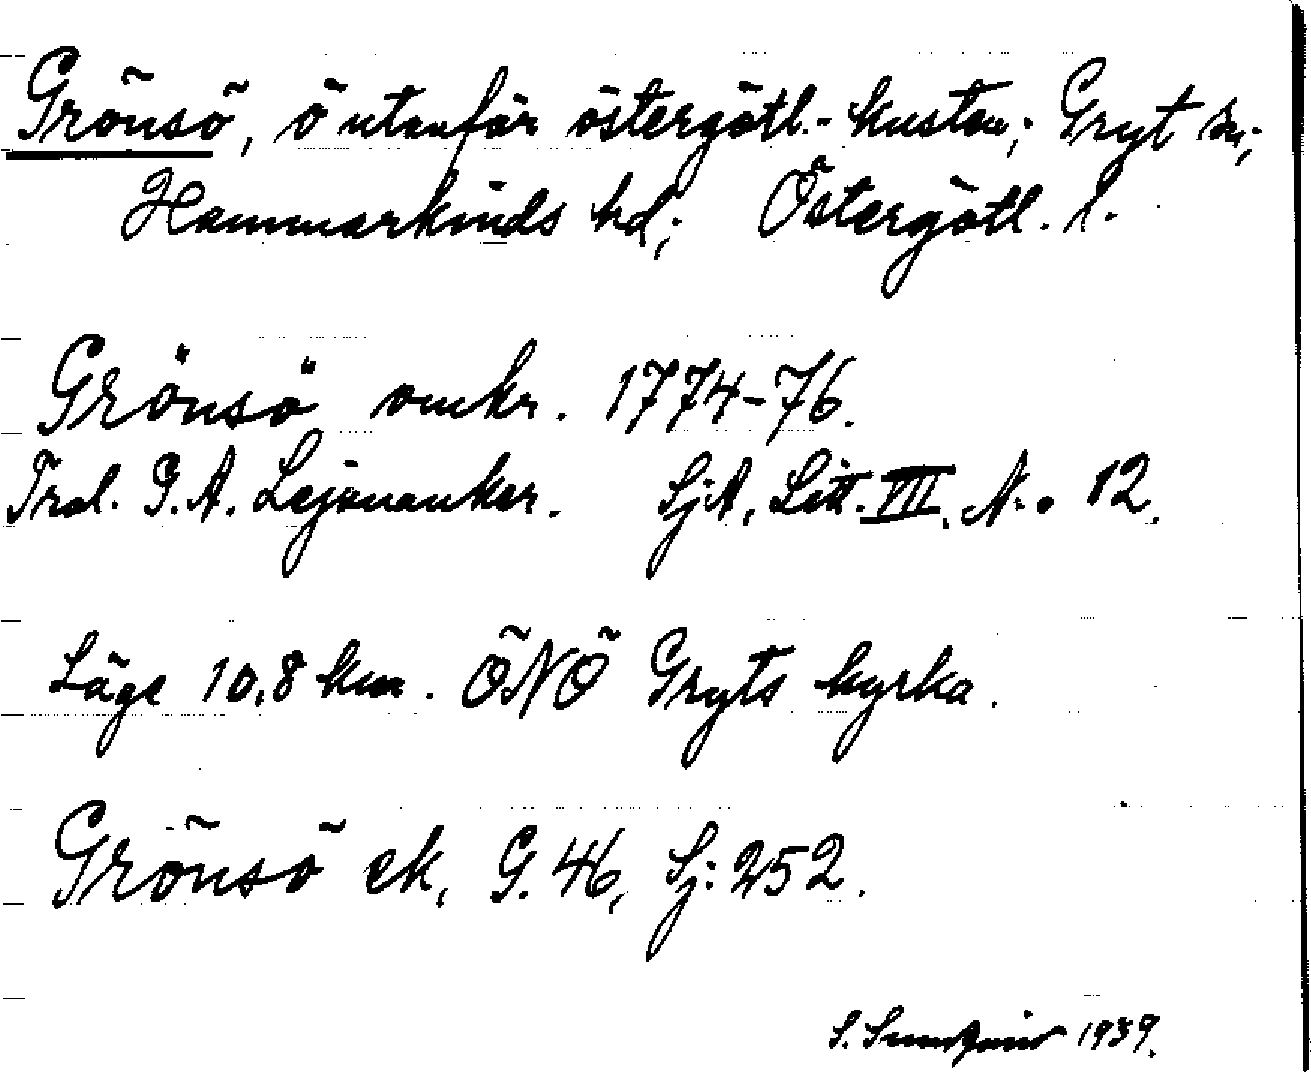 Grönsö, ö utanför östergötl.-kusten; Gryt sn;
Hammarkinds hd; Östergötl. l.
Grönsö omkr. 1774-76.
Trol. G. A. Lejonanker. SjA, Litt. VIII, N:o 12.
Läge 10,8 km. ÖNÖ Gryts kyrka.
Grönsö ek, G. 46, Sj: 252.
S. 1939.